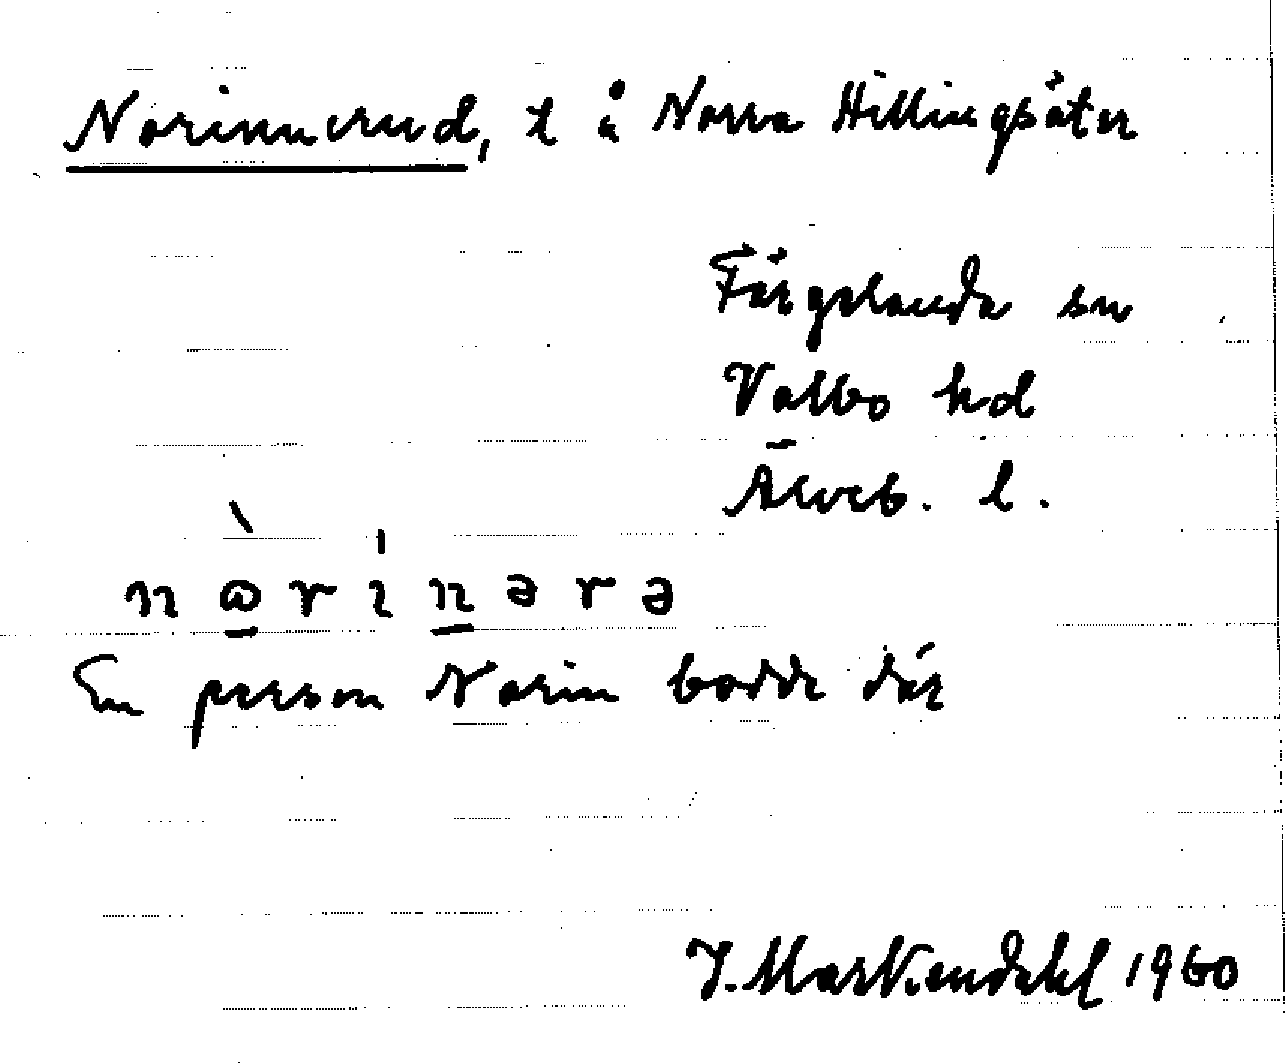 Norinnerud, t å Norra Hillingsäter
Färgelanda sn
Valbo hd
Älvsb. l.
nɷ̀rínərə
En person Norin bodde där
J. Markendahl 1960